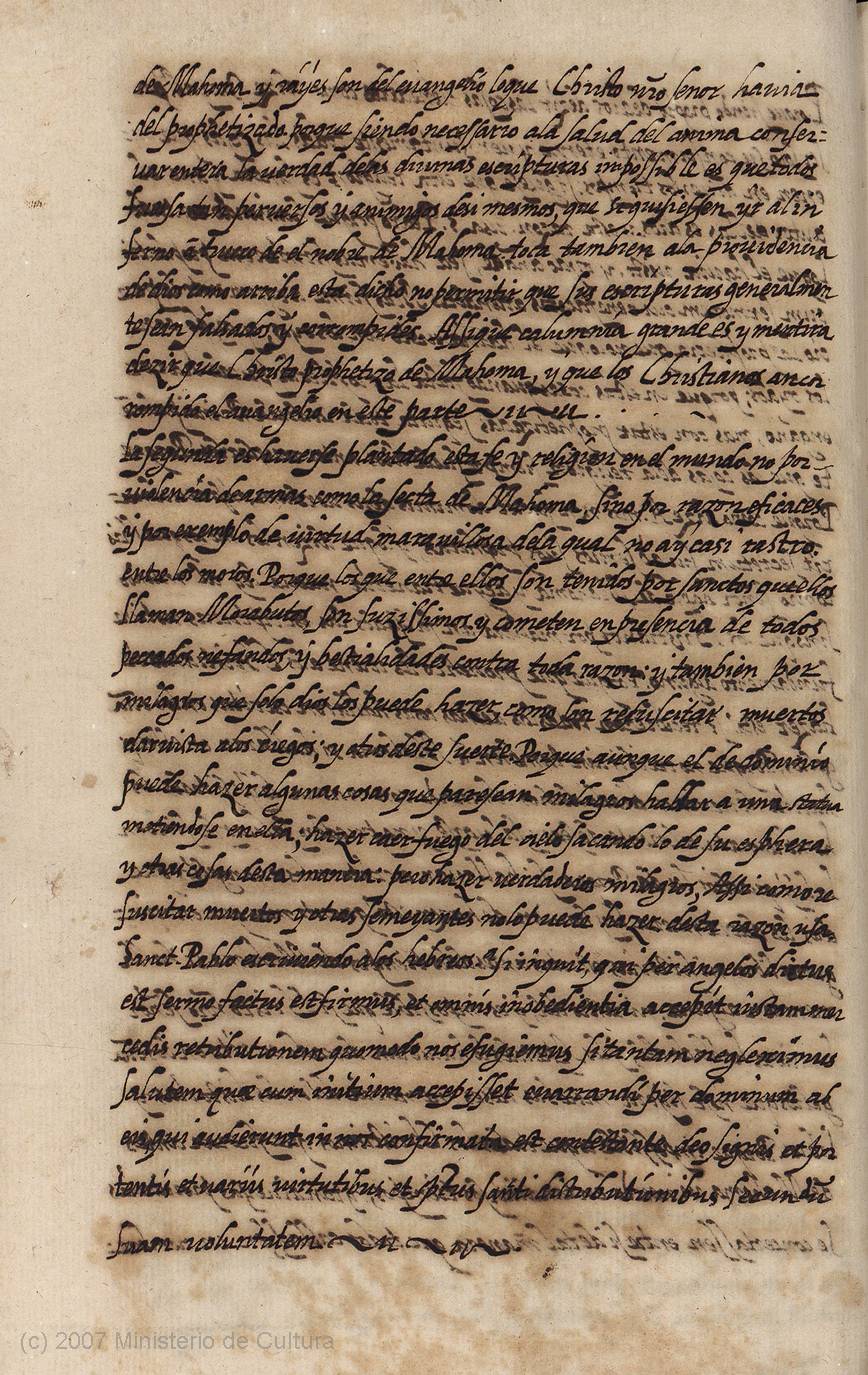 de Mahoma y ráyes son del euangelió loque Christo nr̃o senor hauia
del prophetizado porque siendo necessario ala salud del anima conser=
uar entera la verdad delas diuinas escripturas impossible es que todos
fuessen tan peruersos y enimigos desi mesmos, que se quisiessen yr al in
fierno a trueco de el nobre de Mahoma toca tambien ala prouidencia
de dios como arriba esta dicho no permitir que sus escripturas generalmen
te sean falsados y corrompides. Assique calumnia grande es y mentira
dezir que Christo prophetiza de Mahoma, y que los Christianos an co
rrompido el euangelio en este parte
la segunda es hauerse plantado esta fe y religion en el mundo no por
violencia de armas como la secta de Mahoma, sino por razon eficaces
y por exemplo de virtud marauillosa dela qual no aý casi rastro.
entre los moros. Porque los que entre ellos son tenidos por sanctos que ellos
llaman Morabutos, son suzissimos y cometen en presencia de todos
peccados nefandos y bestialidades contra toda razon: y tambien por
milagros que solo dios los puede hazer como son resuscitar muertos
dar uista alos ciegos; y otras deste suerte. Porque aunque el demonio
puede hazer algunas cosas que paresean milagros hablar a una statua
metiendose en ella, hazer caer fuego del cielo sacando lo de su esphera
y otras cosas desta manera: pero hazer verdaderos milagros, Assi como re
suscitar muertos y otras semeyantes nolo puede hazer desta razon usa
Sanct Pablo escriuiendo alos hebreos. Si inquit, qui per angelos dictus
est sermo factus est firmus, et omnis inobedientia accepit iustam mer
cedis retributionem quomodo nos efugiemus si tantam neglexerimus
salutem quæ cum initium accepisset enarrandi per dominum ab
eis qui audierunt in nos confirmata est contestante deo signis et por
tentis et varijs virtutibus et sp̃us santi distributionibus secundũ
suam voluntatem
(c) 2007 Ministerio de Cultura